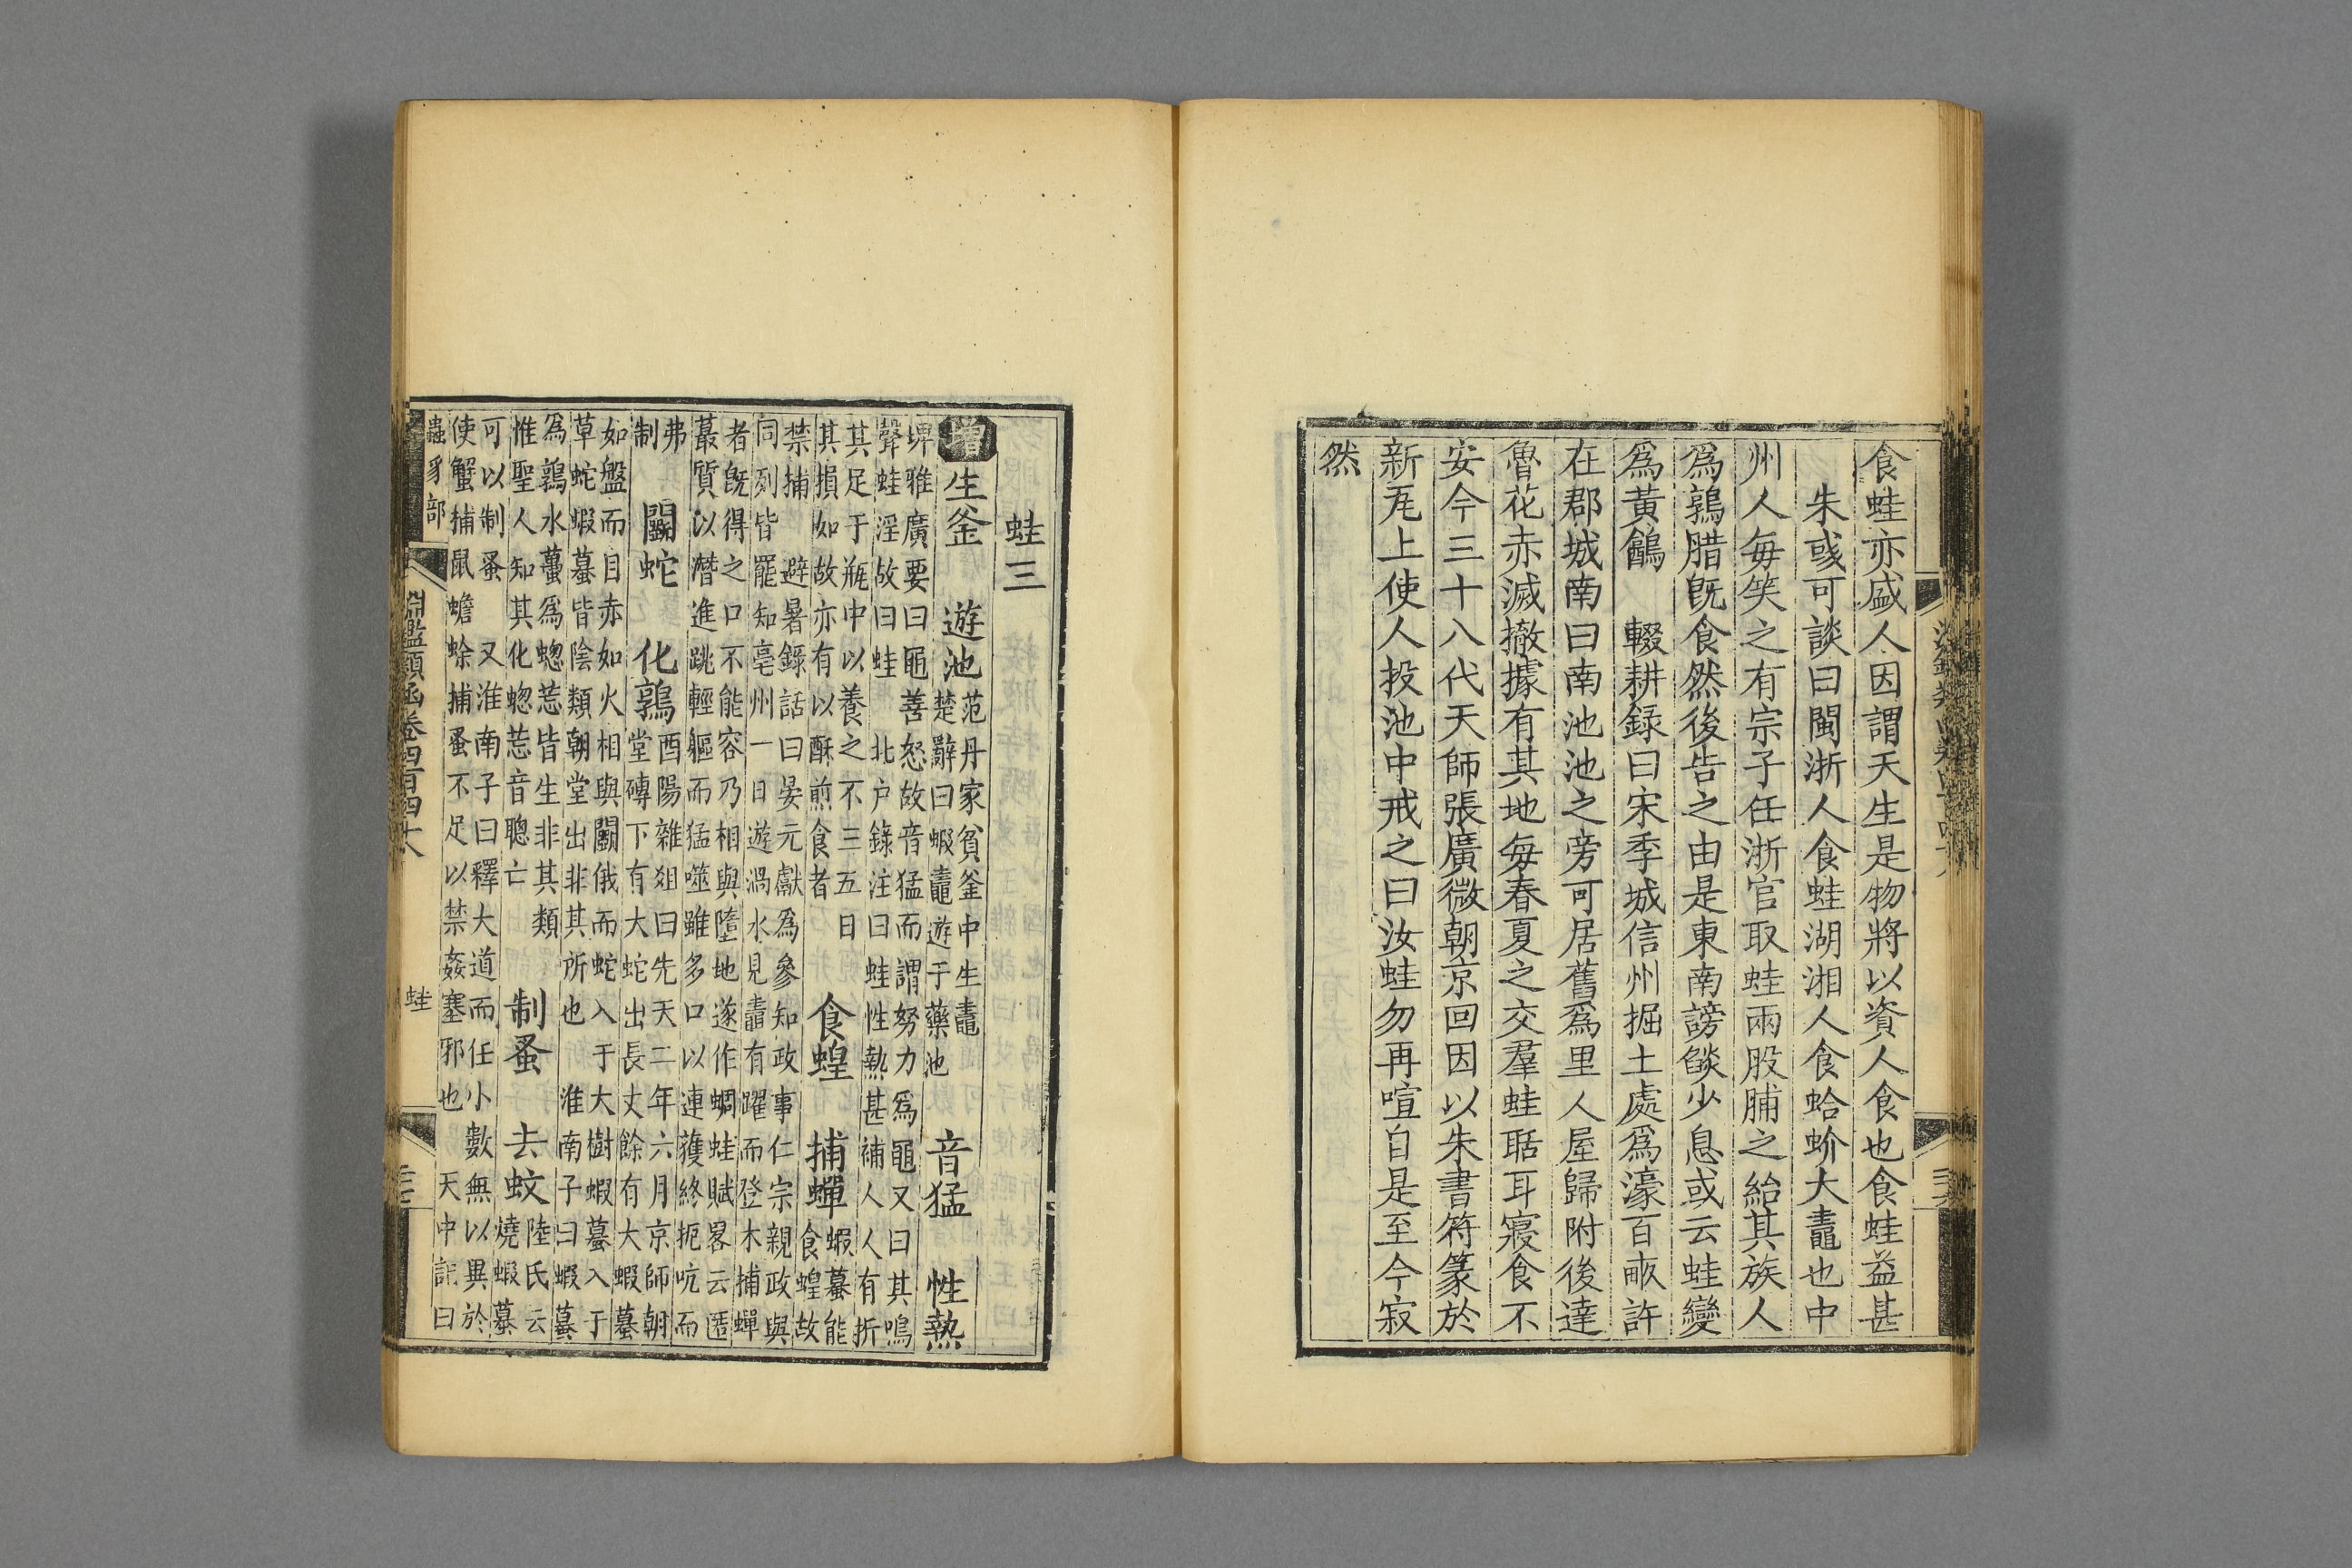 食蛙亦盛人因謂天生是物將以資人食也食蛙益甚
朱彧可談曰閩浙人食蛙湖湘人食蛤蚧大鼃也中
州人每笑之有宗子任浙官取蛙兩股脯之紿其族人
爲鶉腊旣食然後告之由是東南謗燄少息或云蛙變
爲黃䳺　輟耕録曰宋季城信州掘土處爲濠百畞許
在郡城南曰南池池之旁可居舊爲里人屋歸附後達
魯花赤滅撤據有其地每春夏之交羣蛙聒耳寢食不
安今三十八代天師張廣微朝京回因以朱書符篆於
新瓦上使人投池中戒之曰汝蛙勿再喧自是至今寂
然
蛙三
增生釜　遊池
范丹家貧釜中生鼃
楚辭曰蝦鼃遊于藥池
音猛　性熱
埤雅廣要曰黽善怒故音猛而謂努力爲黽又曰其鳴
聲蛙淫故曰蛙　北户錄注曰蛙性熱甚補人人有折
其足于瓶中以養之不三五日
其損如故亦有以酥煎食者
食蝗　捕蟬
蝦蟇能
食蝗故
禁捕　避暑錄話曰晏元獻爲參知政事仁宗親政與
同列皆罷知亳州一日遊渦水見鼃有躍而登木捕蟬
者旣得之口不能容乃相與墮地遂作蜩蛙賦畧云匿
蕞質以潛進跳輕軀而猛噬雖多口以連獲終扼吭而
弗
制
鬭蛇　化鶉
酉陽雜俎曰先天二年六月京師朝
堂磚下有大蛇出長丈餘有大蝦蟇
如盤而目赤如火相與鬭俄而蛇入于大樹蝦蟇入于
草蛇蝦蟇皆陰類朝堂出非其所也　淮南子曰蝦蟇
爲鶉水蠆爲蟌莣皆生非其類
惟聖人知其化蟌莣音聰亡
制蚤　去蚊
陸氏云
燒蝦蟇
可以制蚤　又淮南子曰釋大道而任小數無以異於
使蟹捕鼠蟾蜍捕蚤不足以禁姦塞邪也　天中記曰
蟲豸部
淵鑑類函卷四百四十八
蛙